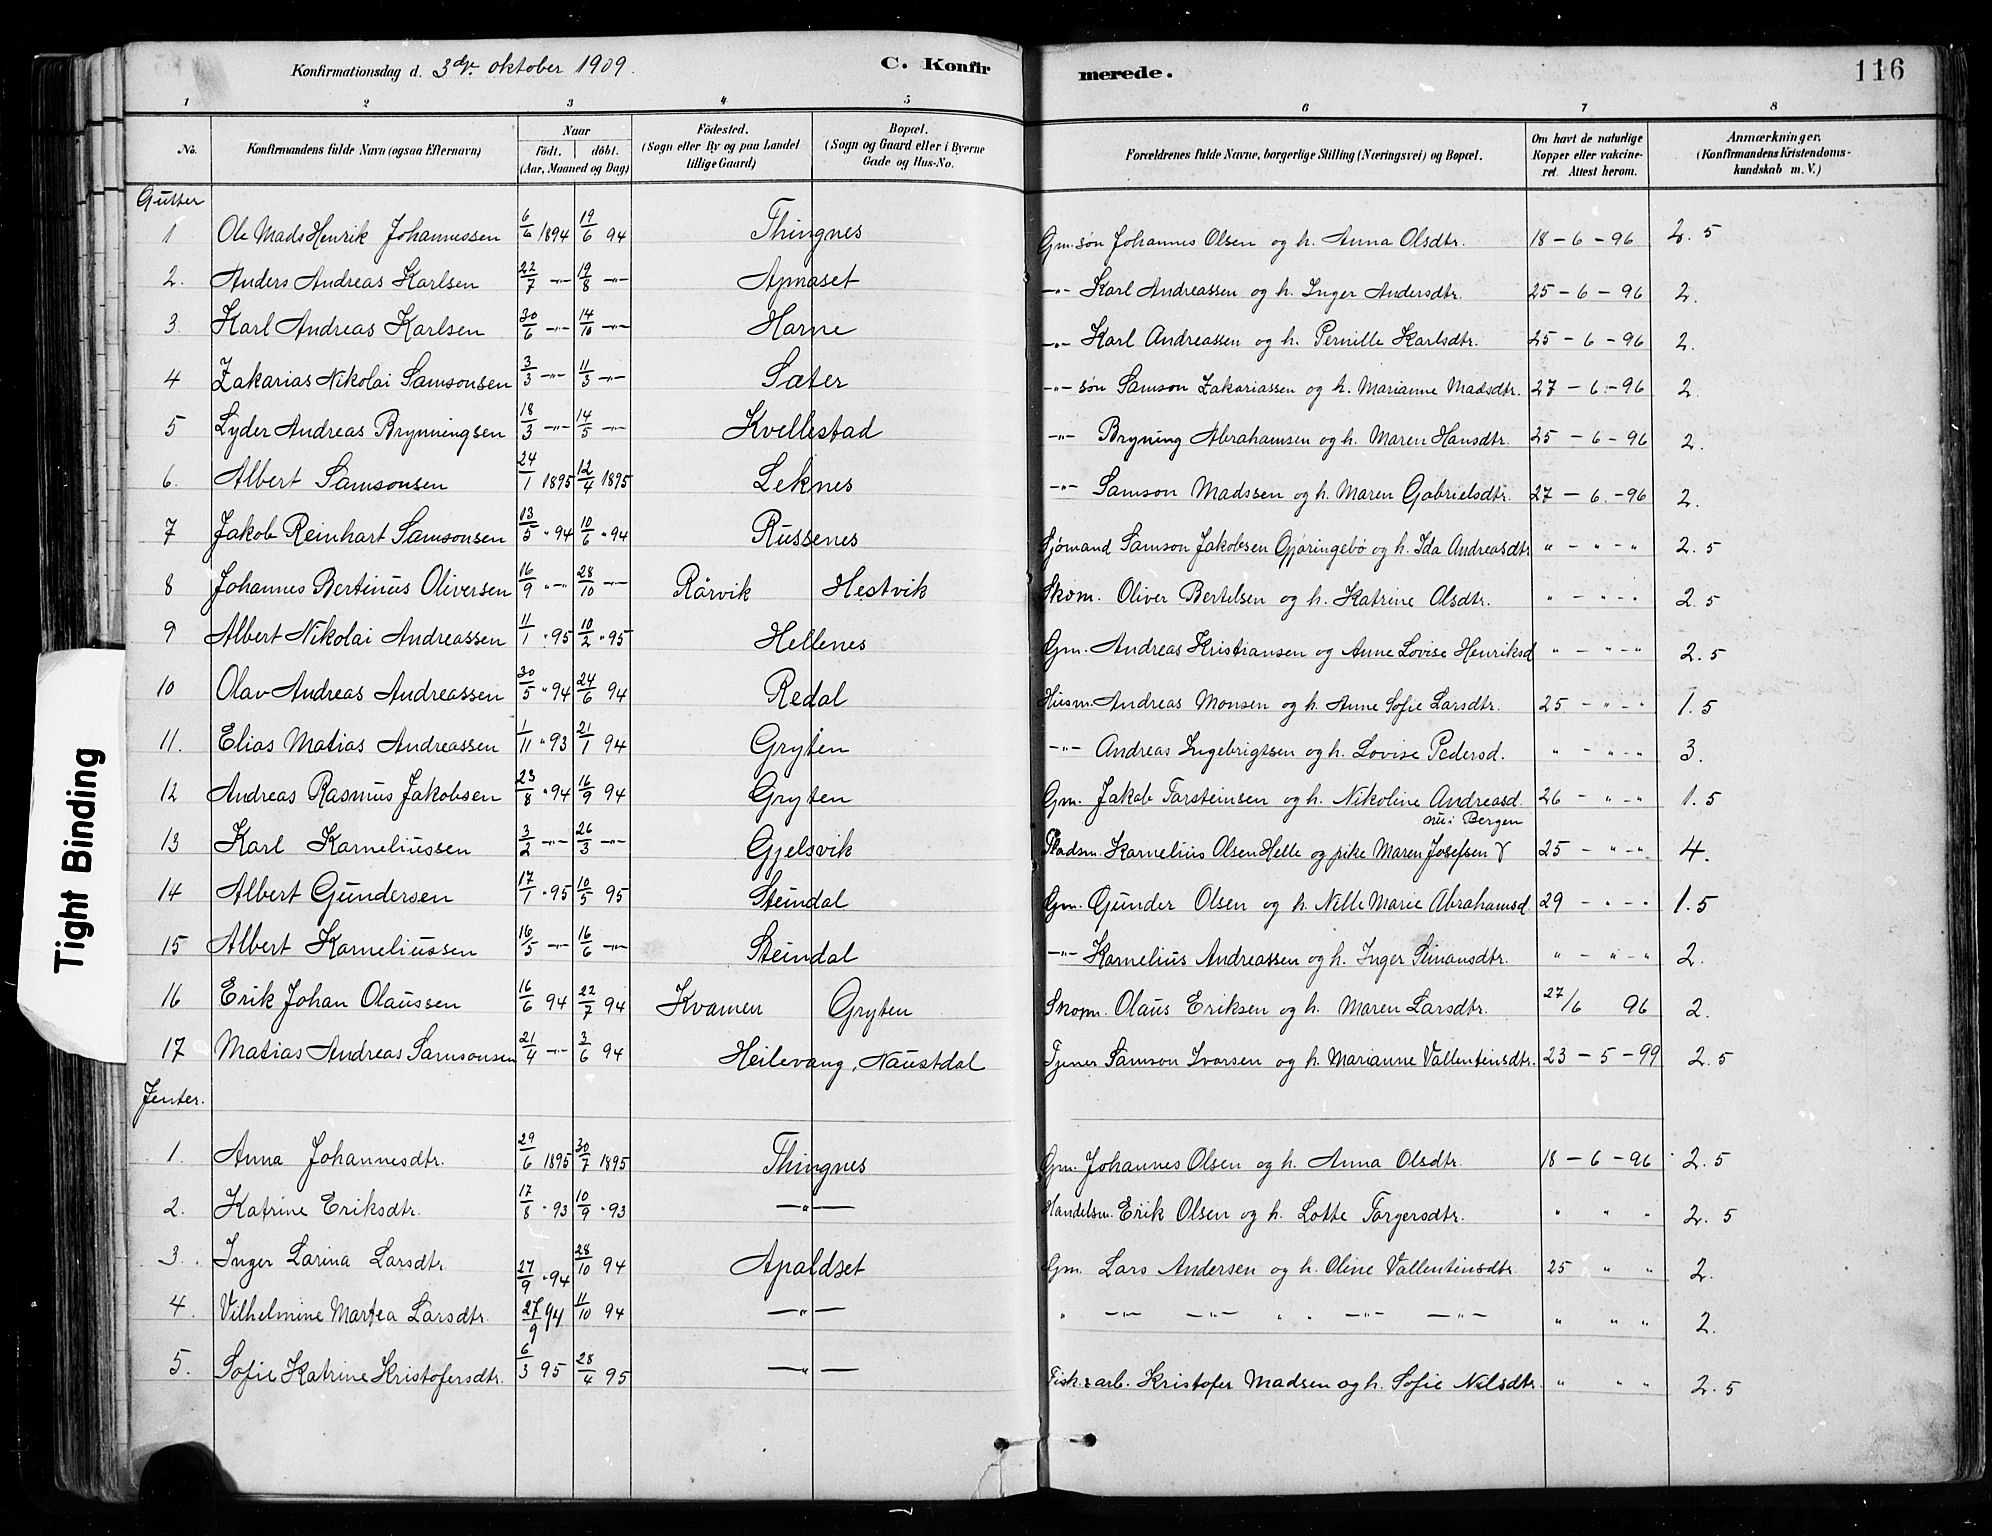 Konfirmationsdag d. 3die oktober 1909. C. Konfirmerede. 116
1 2 3 4 5 6 7 8
No. Konfirmandens fulde Navn (ogsaa Efternavn) Naar födt. döbt. (Aar, Maaned og Dag) Födested. (Sogn eller By og paa Landet tillige Gaard) Bopæl. (Sogn og Gaard eller i Byerne Gade og Hus-No. Forældrenes fulde Navne, borgerlige Stilling (Næringsvei) og Bopæl. Om havt de naturlige Kopper eller vakcineret. Attest herom. Anmærkninger. (Konfirmandens Kristendomskundskab m. V.)
Gutter
1 Ole Mads Henrik Johannessen 6/6 1894 19/6 94 Thingnes Gm. søn Johannes Olsen og h. Anna Olsdtr. 18 - 6 - 96 2.5
2. Anders Andreas Karlsen 22/7 -"- 19/8 -"- Apmaset -"- Karl Andreassen og h. Inger Andersdtr. 25 - 6 - 96 2.
3. Karl Andreas Karlsen 30/6 -"- 14/10 -"- Horne -"- Karl Andreassen og h. Pernille Karlsdtr. 25 - 6 - 96 2.
4 Zakarias Nikolai Samsonsen 3/3 -"- 11/3 -"- Sæter -"- søn Samson Zakariassen og h. Marianne Madsdtr. 27 - 6 - 96 2.
5 Lyder Andreas Brynningsen 18/3 -"- 14/5 -"- Kvellestad -"- Bryning Abrahamsen og h. Maren Hansdtr. 25 - 6 - 96 2.
6. Albert Samsonsen 24/1 1895 12/4 1895 Leknes -"- Samson Madssen og h. Maren Gabrielsdtr. 27 - 6 - 96 2.
7 Jakob Reinhart Samsonsen 13/5 " 94 10/6 " 94 Russenes Sjømand Samson Jakobsen Gjøringebø og h. Ida Andreasdtr " - " - " 2.5
8 Johannes Bertinus Oliversen 16/9 " -"- 28/10 -"- Rörvik Hestvik Skom. Oliver Bertelsen og h. Katrine Olsdtr. " - " - " 2.5
9 Albert Nikolai Andreassen 11/1 " 95 10/2 " 95 Hellenes Gm. Andreas Kristiansen og Anne Lovise Henriksd " - " - " 2.5
10 Olav Andreas Andreassen 30/5 " 94 24/6 94 Redal Husm. Andreas Monsen og h. Anne Sofie Larsdtr. 25 - " - " 1.5
11. Elias Matias Andreassen 1/11 " 93 21/1 94 Gryten -"- Andreas Ingebrigtsen og h. Lovise Pedersd. " - " - " 3.
12 Andreas Rasmus Jakobsen 23/8 " 94 16/9 94 Gryten Gm. Jakob Torsteinsen og h. Nikoline Andreasd. 26 - " - " 1.5
nu i Bergen
13 Karl Korneliussen 3/2 -"- 26/3 -"- Gjelsvik Pladsm. Kornelius Olsen Helle og pike Maren Josefsen 25 - " - " 4.
14 Albert Gundersen 17/1 " 95 10/5 95 Steindal Gm. Gunder Olsen og h. Nille Marie Abrahamsd. 29 - " - " 1.5
15 Albert Korneliussen 16/5 -"- 16/6 -"- Steindal -"- Kornelius Andreassen og h. Inger Simansdtr. " - " - " 2.
16 Erik Johan Olaussen 16/6 94 22/7 94 Kvamen Gryten Skom. Olaus Eriksen og h. Maren Larsdtr. 27/6 96 2.
17 Matias Andreas Samsonsen 21/4 -"- 3/6 94 Heilevang, Naustdal Tjener Samson Ivarsen og h. Marianne Vallentinsdtr. 23 - 5 - 99 2.5
Jenter.
1. Anna Johannesdtr. 29/6 1895 30/7 1895 Thingnes Gm. Johannes Olsen og h. Anna Olsdtr. 18 - 6 - 96 2.5
2. Katrine Eriksdtr. 17/8 " 93 10/9 " 93 -"- Handelsm. Erik Olsen og h. Lotte Torgersdtr. " " " 2.5
3. Inger Larina Larsdtr. 27/9 " 94 28/10 94 Apaldset Gm. Lars Andersen og h. Oline Vallentinsdtr. 25 " " 2.
4. Vilhelmine Martea Larsdtr. 27/9 94 11/10 94 -"- " -"- -"- " " -"- -"- " " " 2.
5. Sofie Katrine Kristofersdtr. 6/3 95 28/4 95 -"- Fisk. arb. Kristofer Madsen og h. Sofie Nilsdtr. " " " 2.5
Tight Binding